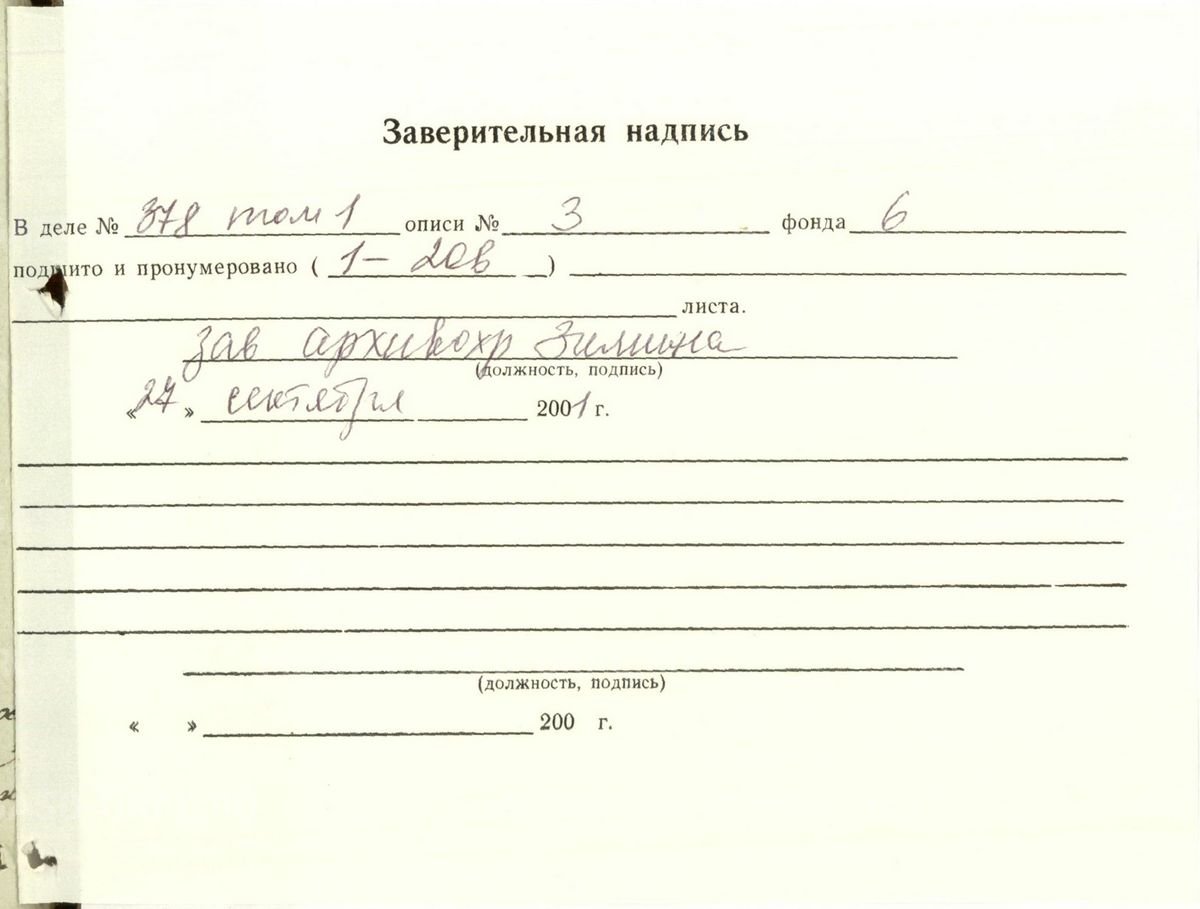 Заверительная надпись
В деле № 378 том 1 описи № 3 фонда 6
подшито и пронумеровано ( 1– 20в )
листа.
зав архивохр Зимина
(должность, подпись)
« 27 » сентября 2001 г.
(должность, подпись)
« » 200 г.